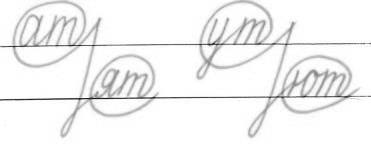 ат/ят ут/ют